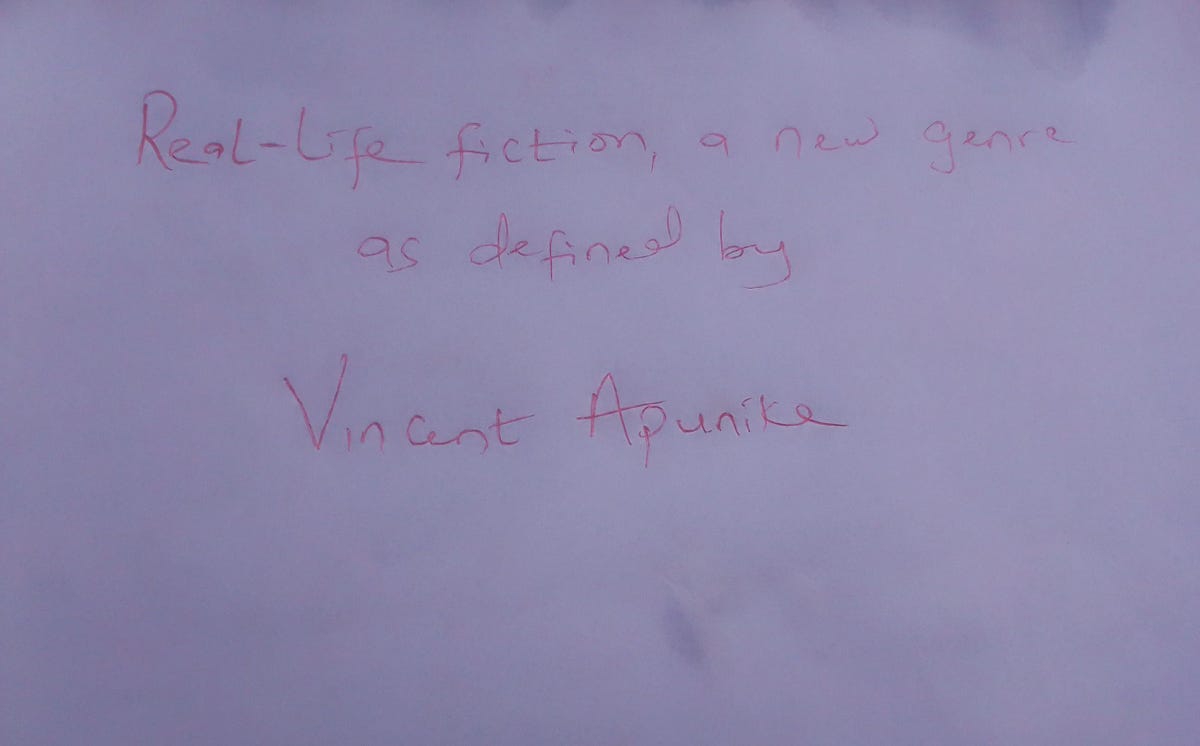 Real-Life fiction, a new genre
as defined by
Vincent Apunike